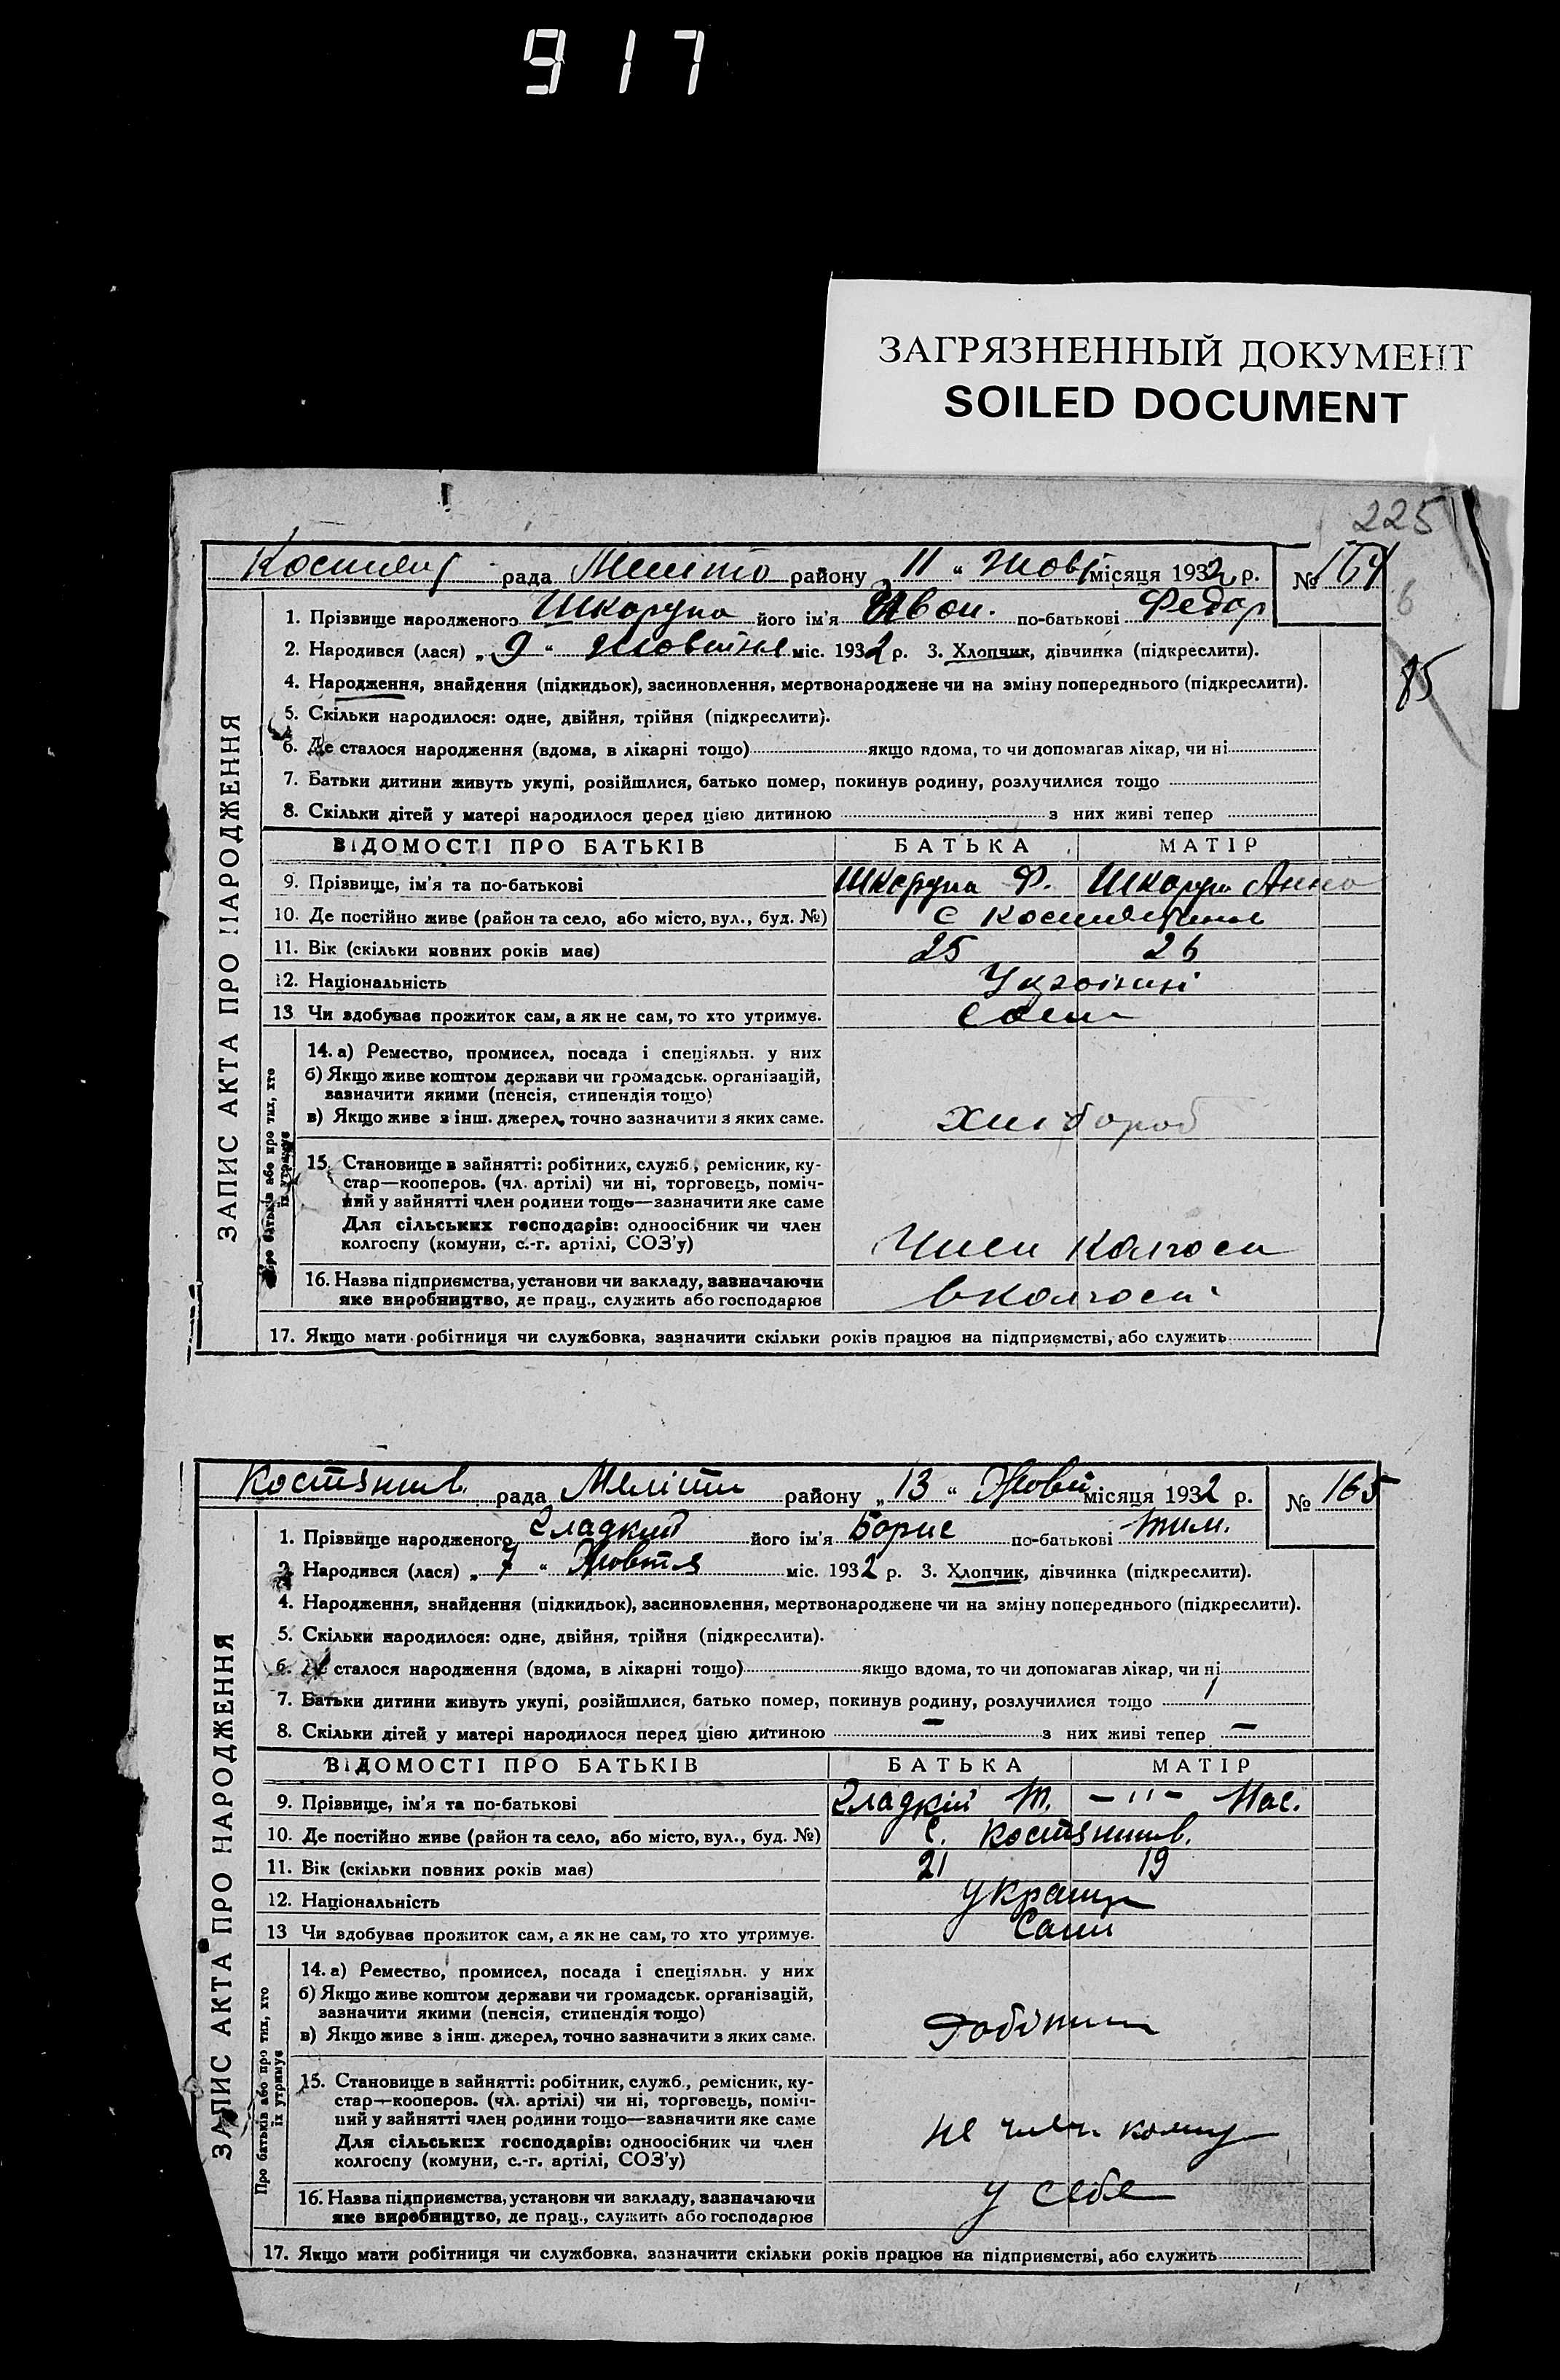 917
ЗАГРЯЗНЕННЫЙ ДОКУМЕНТ
SOILED DOCUMENT
225
рада району „ 11 “ Жовт місяця 1932 р. № 164
6
85
ЗАПИС АКТА ПРО НАРОДЖЕННЯ
1. Прізвище народженого Шкорупа його ім'я Іван. по-батькові Федор
2. Народився (лася) „ 9 “ Жовтня міс. 1932 р. 3. Хлопчик, дівчинка (підкреслити).
4. Народження, знайдення (підкидьок), засиновлення, мертвонароджене чи на зміну попереднього (підкреслити).
5. Скільки народилося: одне, двійня, трійня (підкреслити).
6. Де сталося народження (вдома, в лікарні тощо) якщо вдома, то чи допомагав лікар, чи ні
7. Батьки дитини живуть укупі, розійшлися, батько помер, покинув родину, розлучилися тощо
8. Скільки дітей у матері народилося перед цією дитиною з них живі тепер
ВІДОМОСТІ ПРО БАТЬКІВ БАТЬКА МАТІР
9. Прізвище, ім'я та по-батькові Шкорупа Ф. Шкоруп Анна
10. Де постійно живе (район та село, або місто, вул., буд. №) с
11. Вік (скільки повних років має) 25 26
12. Національність Українці
13 Чи здобував прожиток сам, а як не сам, то хто утримує. Сами
Про батьків або про тих, хто їх утримує
14. а) Ремество, промисел, посада і спеціяльн. у них
б) Якщо живе коштом держави чи громадськ. організацій,
зазначити якими (пенсія, стипендія тощо)
в) Якщо живе з інш. джерел, точно зазначити з яких саме. Хлібороб
15. Становище в зайнятті: робітник, служб., ремісник, ку-
стар—кооперов. (чл. артілі) чи ні, торговець, поміч-
ний у зайнятті член родини тощо—зазначити яке саме
Для сільських господарів: одноосібник чи член
колгоспу (комуни, с.-г. артілі, СОЗ'у) Член колгосп
16. Назва підприємства, установи чи закладу, зазначаючи
яке виробництво, де прац., служить або господарює в колгоспі
17. Якщо мати робітниця чи службовка, зазначити скільки років працює на підприємстві, або служить
Костянтив. рада Меліто району „ 13 “ Жовт місяця 1932 р. № 165
ЗАПИС АКТА ПРО НАРОДЖЕННЯ
1. Прізвище народженого Гладкий його ім'я Борис по-батькові Тим.
2. Народився (лася) „ 7 “ Жовтя міс. 1932 р. 3. Хлопчик, дівчинка (підкреслити).
4. Народження, знайдення (підкидьок), засиновлення, мертвонароджене чи на зміну попереднього (підкреслити).
5. Скільки народилося: одне, двійня, трійня (підкреслити).
6. Де сталося народження (вдома, в лікарні тощо) якщо вдома, то чи допомагав лікар, чи ні
7. Батьки дитини живуть укупі, розійшлися, батько помер, покинув родину, розлучилися тощо
8. Скільки дітей у матері народилося перед цією дитиною — з них живі тепер —
ВІДОМОСТІ ПРО БАТЬКІВ БАТЬКА МАТІР
9. Прізвище, ім'я та по-батькові Гладкій Т. — " — Нас.
10. Де постійно живе (район та село, або місто, вул., буд. №) с. Костянтив.
11. Вік (скільки повних років має) 21 19
12. Національність Україн
13 Чи здобував прожиток сам, а як не сам, то хто утримує. Сами
Про батьків або про тих, хто їх утримує
14. а) Ремество, промисел, посада і спеціяльн. у них
б) Якщо живе коштом держави чи громадськ. організацій,
зазначити якими (пенсія, стипендія тощо)
в) Якщо живе з інш. джерел, точно зазначити з яких саме. Робітник
15. Становище в зайнятті: робітник, служб., ремісник, ку-
стар—кооперов. (чл. артілі) чи ні, торговець, поміч-
ний у зайнятті член родини тощо—зазначити яке саме
Для сільських господарів: одноосібник чи член
колгоспу (комуни, с.-г. артілі, СОЗ'у) не член.
16. Назва підприємства, установи чи закладу, зазначаючи
яке виробництво, де прац., служить або господарює у себе
17. Якщо мати робітниця чи службовка, зазначити скільки років працює на підприємстві, або служить